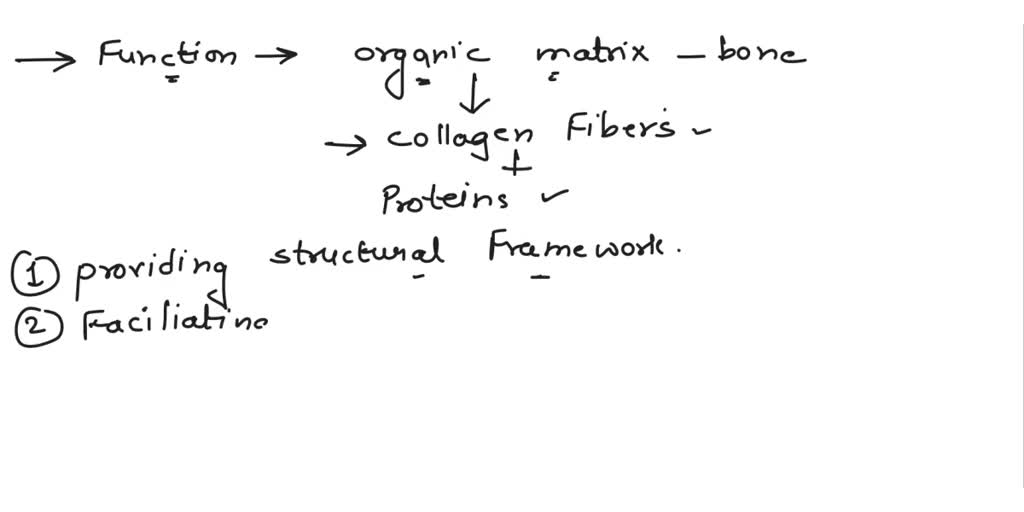 → Function → organic matrix – bone
↓
→ collagen Fibers ✓
+
Proteins ✓
① providing structural Framework.
② Faciliating